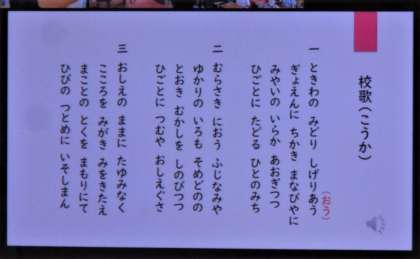 校歌(こうか)
(おう)
一 ときわの みどり しげりあう
ぎょえんに ちかき まなびやに
みやいの いらか あおぎつつ
ひごとに たどる ひとのみち
二 むらさき におう ふじなみや
ゆかりの いろも そめどのの
とおき むかしを しのびつつ
ひごとに つむや おしえぐさ
三 おしえの ままに たゆみなく
こころを みがき みをきたえ
まことの とくを まもりにて
ひびの つとめに いそしまん